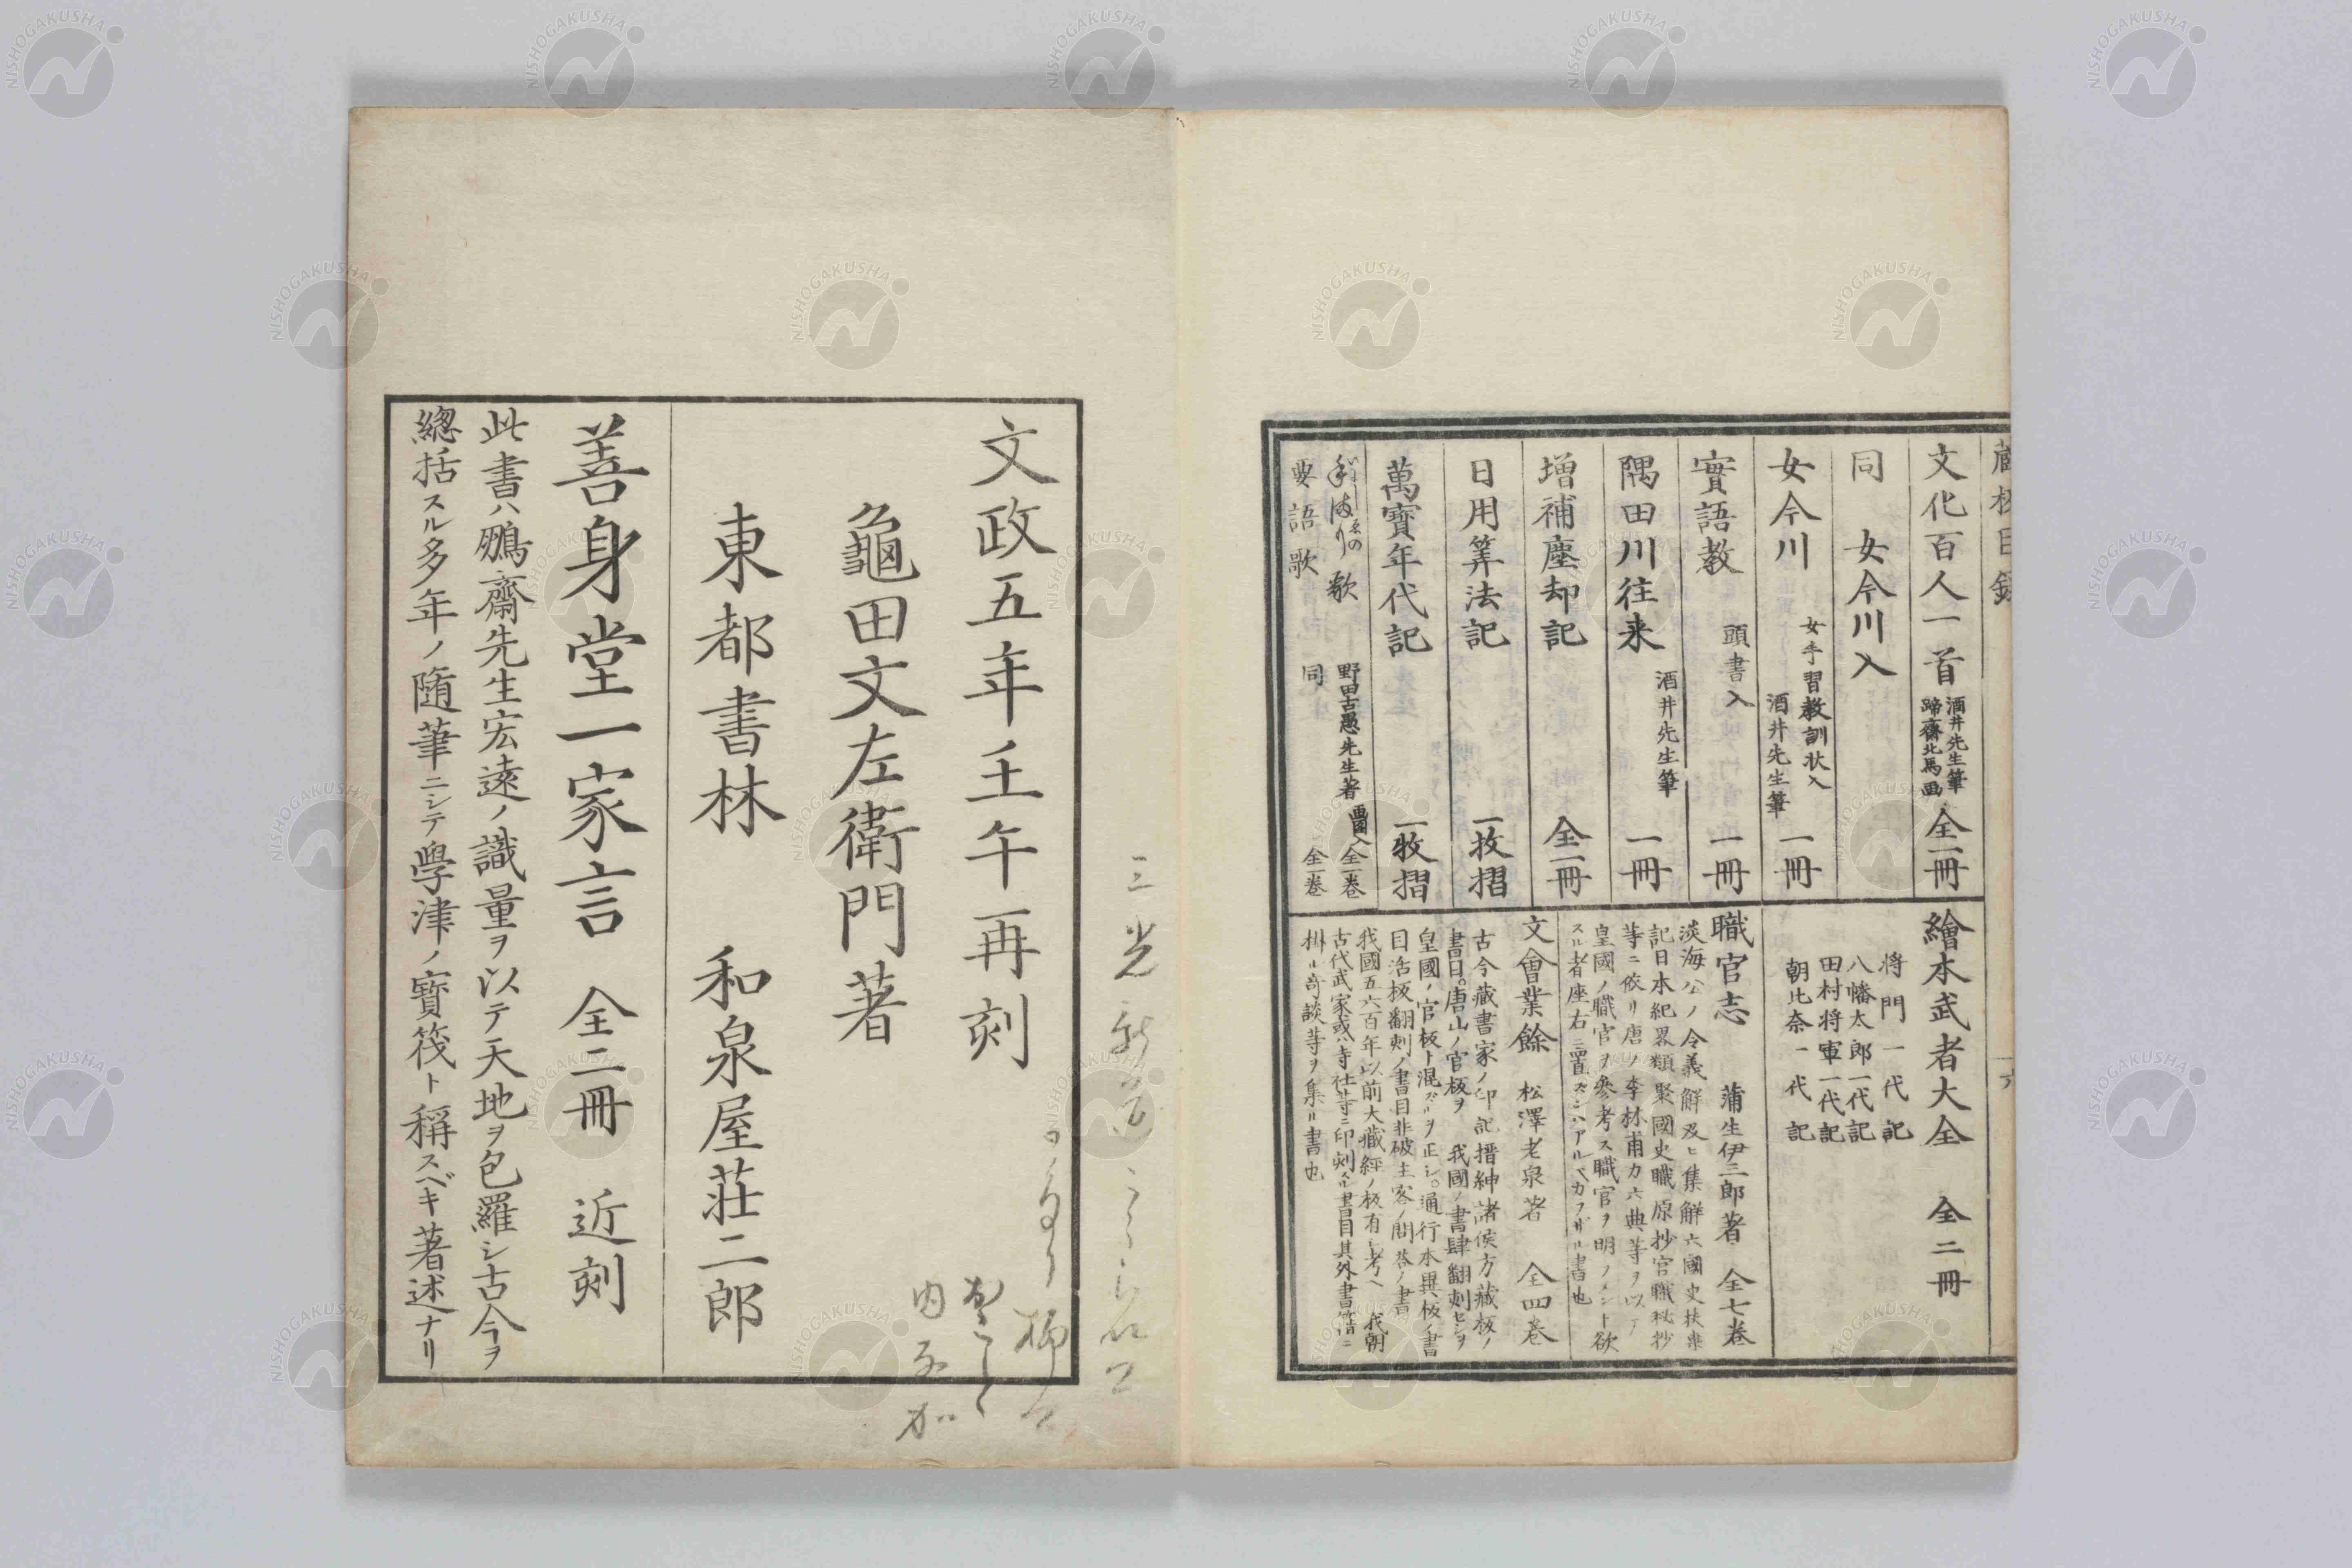 蔵板目録
文化百人一首 酒井先生筆 蹄齋北馬画 全一冊
同 女今川入
女今川 女手習教訓状入 酒井先生筆 一冊
實語教 頭書入 一冊
隅田川往来 酒井先生筆 一冊
増補塵却記 全一冊
日用筭法記 一枚摺
萬寳年代記 一枚摺
歌 野田古愚先生著 画図入 全一巻
要語歌 同 全一巻
繪本武者大全 全二冊
將門一代記
八幡太郎一代記
田村将軍一代記
朝比奈一代記
職官志 蒲生伊三郎著 全七巻
淡海公ノ令義解及ヒ集解六國史扶桑
記日本紀畧類聚國史職原抄官職秘抄
等ニ依リ唐ノ李林甫カ六典等ヲ以テ
皇國ノ職官ヲ參考ス職官ヲ明ノメント欲
スル者座右ニ置ズンバアルベカラザル書也
文會業餘 松澤老泉著 全四巻
古今蔵書家ノ印記搢紳諸侯方蔵板ノ
書目。唐山ノ官板ヲ 我國ノ書肆翻刻セシヲ
皇國ノ官板ト混ズルヲ正シ。通行本異板ノ書
目活板翻刻ノ書目非破主客ノ問荅ノ書
我國五六百年以前大藏經ノ板有シ考ヘ 我朝
古代武家或ハ寺社等ニ印刻スル書目其外書籍ニ
掛ル奇談等ヲ集ル書也
文政五年壬午再刻
龜田文左衛門著
東都書林 和泉屋荘二郎
善身堂一家言 全二冊 近刻
此書ハ鵬齋先生宏遠ノ識量ヲ以テ天地ヲ包羅シ古今ヲ
總括スル多年ノ隨筆ニシテ學津ノ寳筏ト稱スベキ著述ナリ
NISHOGAKUSHA